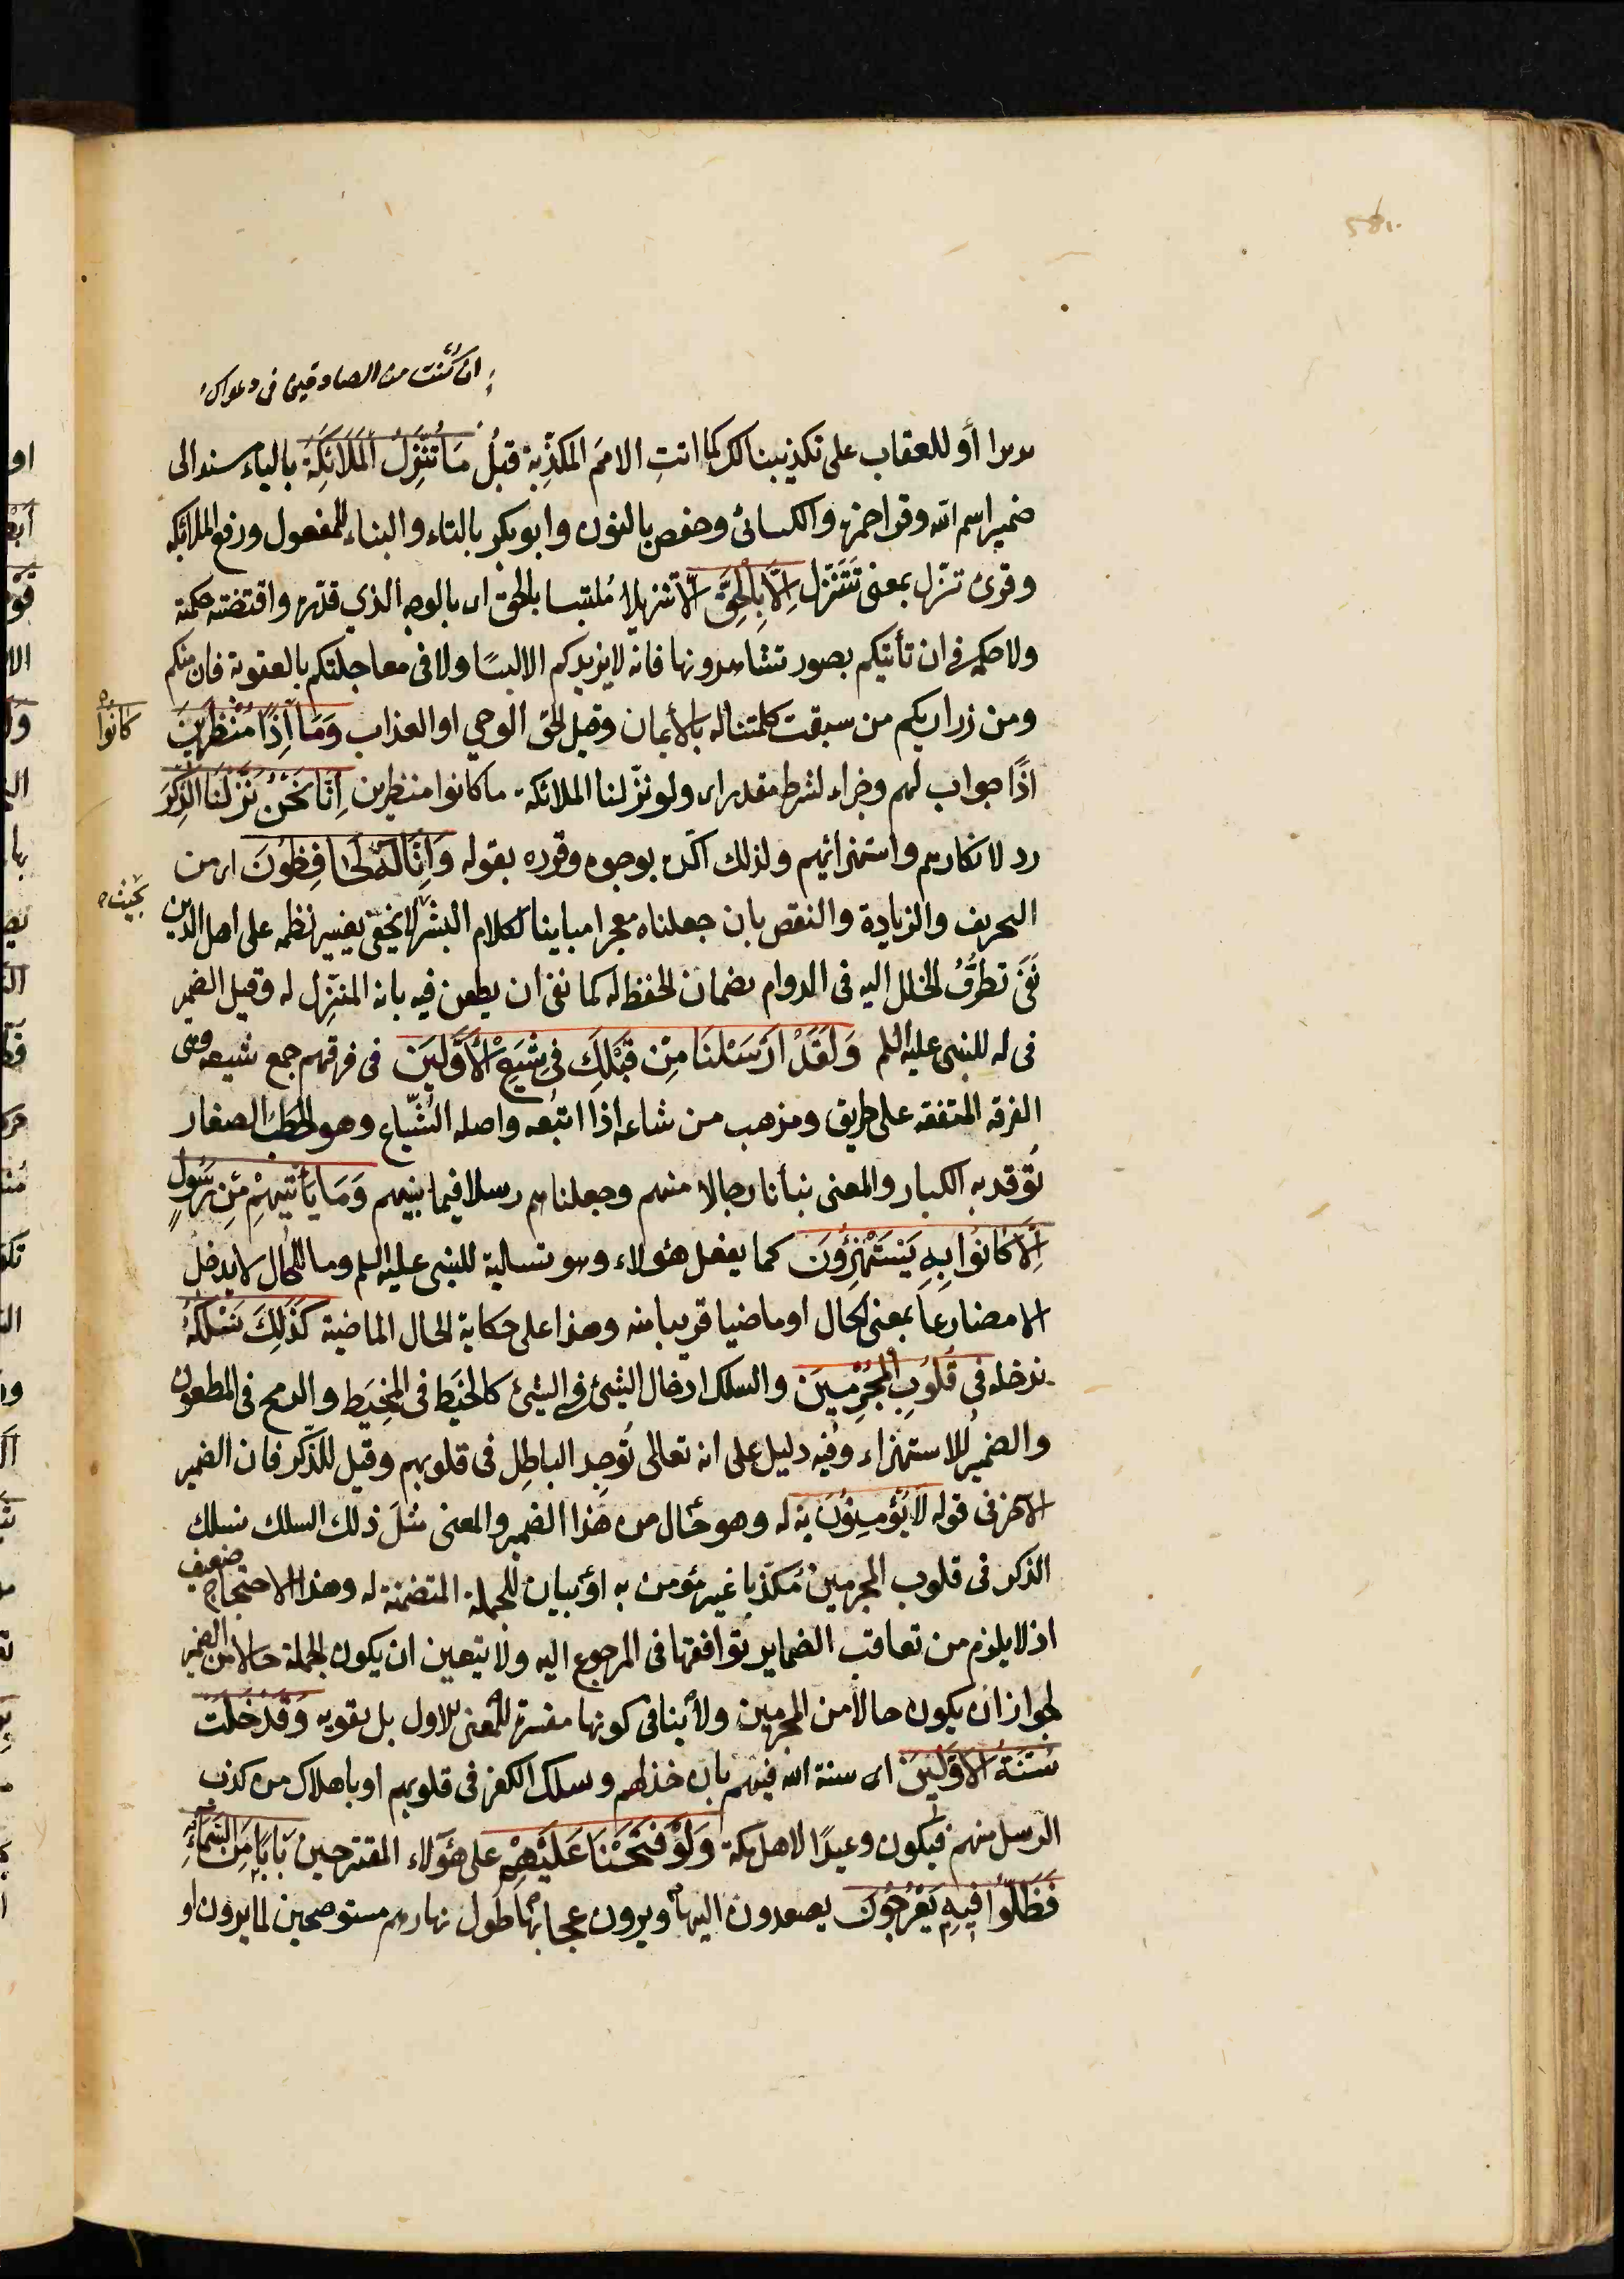 ان كنت من الصادقين فى دعواك
او للعقاب على تكذيبنا لك كما اتتِ الامم المكذِّبة قبلُ مَا تُنَزِّلُ الْمَلَائِكَةَ بالياء مسندا الى
ضمير اسم الله وقرا حمزة والكسائى وحفص بالنون وابو بكر بالتاء والبناء للمفعول ورفع الملائكة
وقرئ تنزّل بمعنى تَتَنَزّل اِلَّا بِالْحَقِّ الّا تنزيلا مُلتبسا بالحق اى بالوجه الذي قدّره واقتضته حكمته
ولا حكمة فى ان تأتيكم بصور تشاهدونها فانه لا يزيدكم الا لبسًا ولا فى معاجلتكم بالعقوبة فان منكم
ومن ذراريكم من سبقت كلمتنا له بالأيمان وقيل الحق الوحي او العذاب وَمَا كَانُوا اِذًا مُنْظَرِينَ
اذًا جواب لهم وجزاء لشرط مقدر اى ولو نزّلنا الملائكة ما كانوا منظرين اِنَّا نَحْنُ نَزَّلْنَا الذِّكْرَ
رد لانكارهم واستهزائهم ولذلك اكّده بوجوه وقرره بقوله وَاِنَّا لَهُ لَحَافِظُونَ اى من
التحريف والزيادة والنقص بان جعلناه معجزا مباينا لكلام البشر بحيث لا يخفى تغيير نظمه على اهل اللسان
نَفَى تطرُّقُ الخلل اليه فى الدوام بضمان الحفظ له كما نفى ان يطعن فيه بانه المنزِّل له وقيل الضمير
فى له للنبى عليه السلم وَلَقَدْ اَرْسَلْنَا مِنْ قَبْلِكَ فِى شِيَعِ الْاَوَّلِينَ فى فرقهم جمع شيعه وهى
الفرقه المتفقه على طريق ومذهب من شاعه اذا اتبعه واصله الشِّيَاع وهو الحطب الصغار
تُوقد به الكبار والمعنى نبأنا رجالا منهم وجعلناهم رسلا فيما بينهم وَمَا يَأْتِيهِمْ مِنْ رَسُولٍ
اِلَّا كَانُوا بِهِ يَسْتَهْزِؤُنَ كما يفعل هئولاء وهو تسلية للنبى عليه السلم وما للحال لا يدخل
الا مضارعا بمعنى الحال او ماضيا قريبا منه وهذا على حكاية الحال الماضية كَذٰلِكَ نَسْلُكُهُ
ندخله فِى قُلُوبِ الْمُجْرِمِينَ والسلك ادخال الشئ فى الشئ كالخيط فى المِخيَط والرمح فى المطعون
والضمير للاستهزاء وفيه دليل على انه تعالى يُوجِد الباطل فى قلوبهم وقيل للذّكر فان الضمير
الآخر فى قوله لَا يُؤْمِنُونَ بِهِ له وهو حال من هذا الضمير والمعنى مثلَ ذلك السلك نسلك
الذكر فى قلوب المجرمين مُكذّبا غير مؤمن به او بيان للجملة المتضمنة له وهذا الاحتجاج ضعيف
اذ لا يلزم من تعاقب الضماير توافقها فى المرجوع اليه ولا يتعين ان يكون الجملة حالا من الضمير
لجواز ان يكون حالا من المجرمين ولا ينافى كونها مفسرة للمعنى الاول بل يقويه وَقَدْ خَلَتْ
سُنَّةُ الْاَوَّلِينَ اى سنة الله فيهم بان خذلهم وسلك الكفر فى قلوبهم او باهلاك من كذب
الرسل منهم فيكون وعيدًا لاهل مكة وَلَوْ فَتَحْنَا عَلَيْهِمْ على هؤلاء المقترحين بَابًا مِنَ السَّمَاءِ
فَظَلُّوا فِيهِ يَعْرُجُونَ يصعدون اليها ويرون عجائبها طول نهارهم مستوضحين لما يرون او